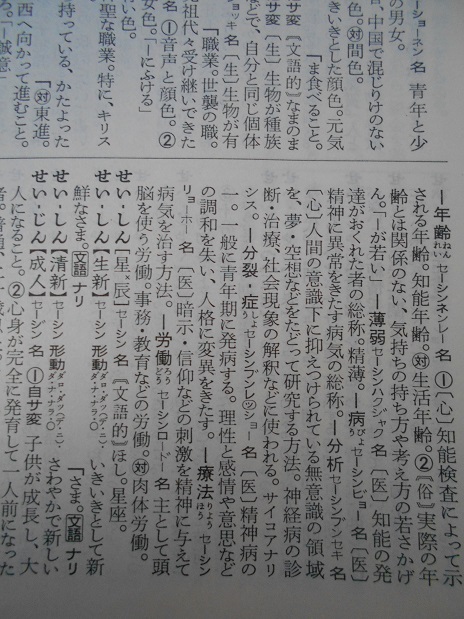 ーショーネン 名 青年と少
の男女。
、中国で混じりけのない
色。対間色。
きいきとした顔色。元気
「ま食べること。
サ変〖文語的〗なまのま
サ変〔生〕生物が種族
どで、自分と同じ個体
ョッキ 名〔生〕生物が有
「職業。世襲の職。
祖代々受け継いできた
名①音声と顔色。②
女色。「—にふける」
聖な職業。特に、キリス
持っている、かたよった
「対東進。
西へ向かって進むこと。
「—誠意
—年齢ねんれい セーシンネンレー 名 ①〔心〕知能検査によって示
される年齢。知能年齢。対生活年齢。②〖俗〗実際の年
齢とは関係のない、気持ちの持ち方や考え方の若さかげ
ん。「—が若い」—薄弱はくじゃく セーシンハクジャク 名〔医〕知能の発
達がおくれた者の総称。精薄。—病びょう セーシンビョー 名〔医〕
精神に異常をきたす病気の総称。—分析ぶんせき セーシンブンセキ 名
〔心〕人間の意識下に抑えつけられている無意識の領域
を、夢・空想などをたどって研究する方法。神経病の診
断・治療、社会現象の解釈などに使われる。サイコアナリ
シス。—分裂・症ぶんれつしょう セーシンブンレッショー 名〔医〕精神病の
一。一般に青年期に発病する。理性と感情や意思など
の調和を失い、人格に変異をきたす。—療法りょうほう セーシン
リョーホー 名〔医〕暗示・信仰などの刺激を精神に与えて
病気を治す方法。—労働ろうどう セーシンロードー 名 主として頭
脳を使う労働。事務・教育などの労働。対肉体労働。
せい-しん【星・辰】セーシン 名〖文語的〗ほし。星座。
せい-しん【生新】セーシン 形動ダロ・ダッ・デ・ニ・ダ・ナ・ナラ・○ いきいきとして新
鮮なさま。文語ナリ 「さま。文語ナリ
せい-しん【清新】セーシン 形動ダロ・ダッ・デ・ニ・ダ・ナ・ナラ・○ さわやかで新しい
せい-じん【成人】セージン 名①自サ変 子供が成長し、大
人になること。②心身が完全に発育して一人前になった